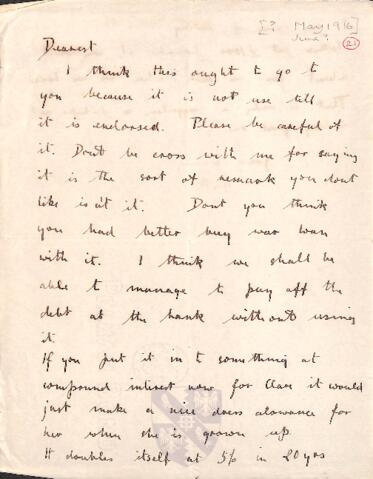 [? May 1916]
June?
(21)
Dearest
I think this ought to go to
you because it is not use till
it is endorsed. Please be careful of
it. Dont be cross with me for saying
it is the sort of remark you dont
like is it it. Dont you think
you had better buy war loan
with it. I think we shall be
able to manage to pay off the
debt at the bank without using
it.
If you put it in to something at
compound interest now for Clare it would
just make a nice dress allowance for
her when she is grown up.
It doubles itself at 5% in 20 yrs